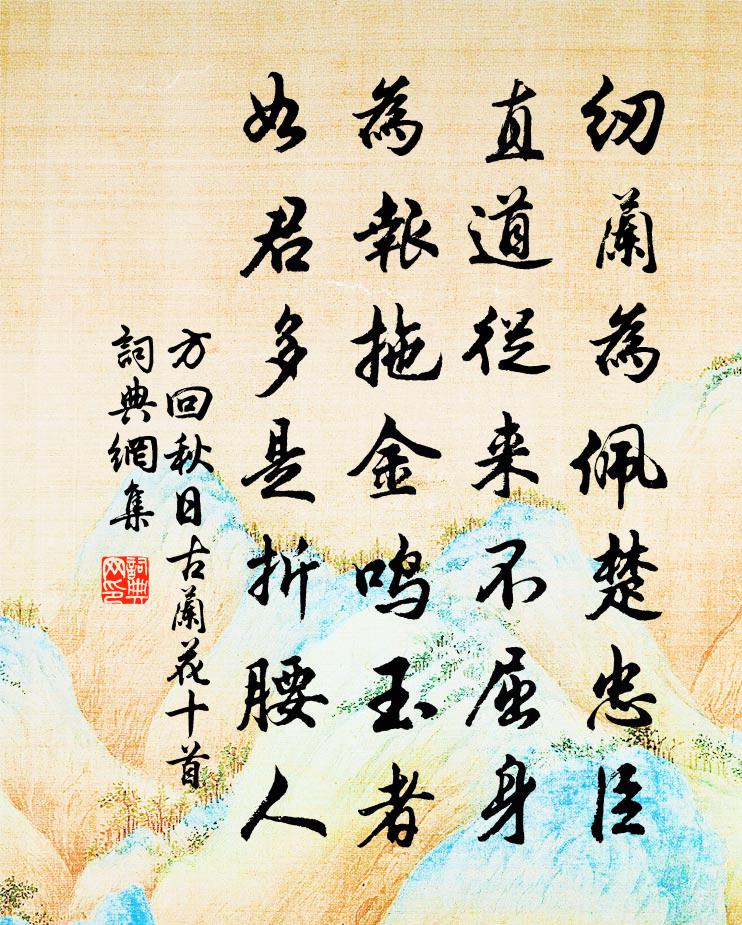 紉蘭為佩楚忠臣
直道從来不屈身
為報拖金鳴玉者
如君多是折腰人
方回秋日古蘭花十首
詞典網集
詞典网印